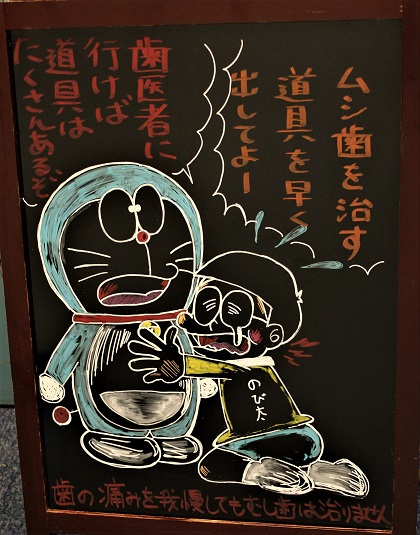 ムシ歯を治す
道具を早く
出してよー
歯医者に
行けば
道具は
たくさんあるぞ
のび太
歯の痛みを我慢してもむし歯は治りません